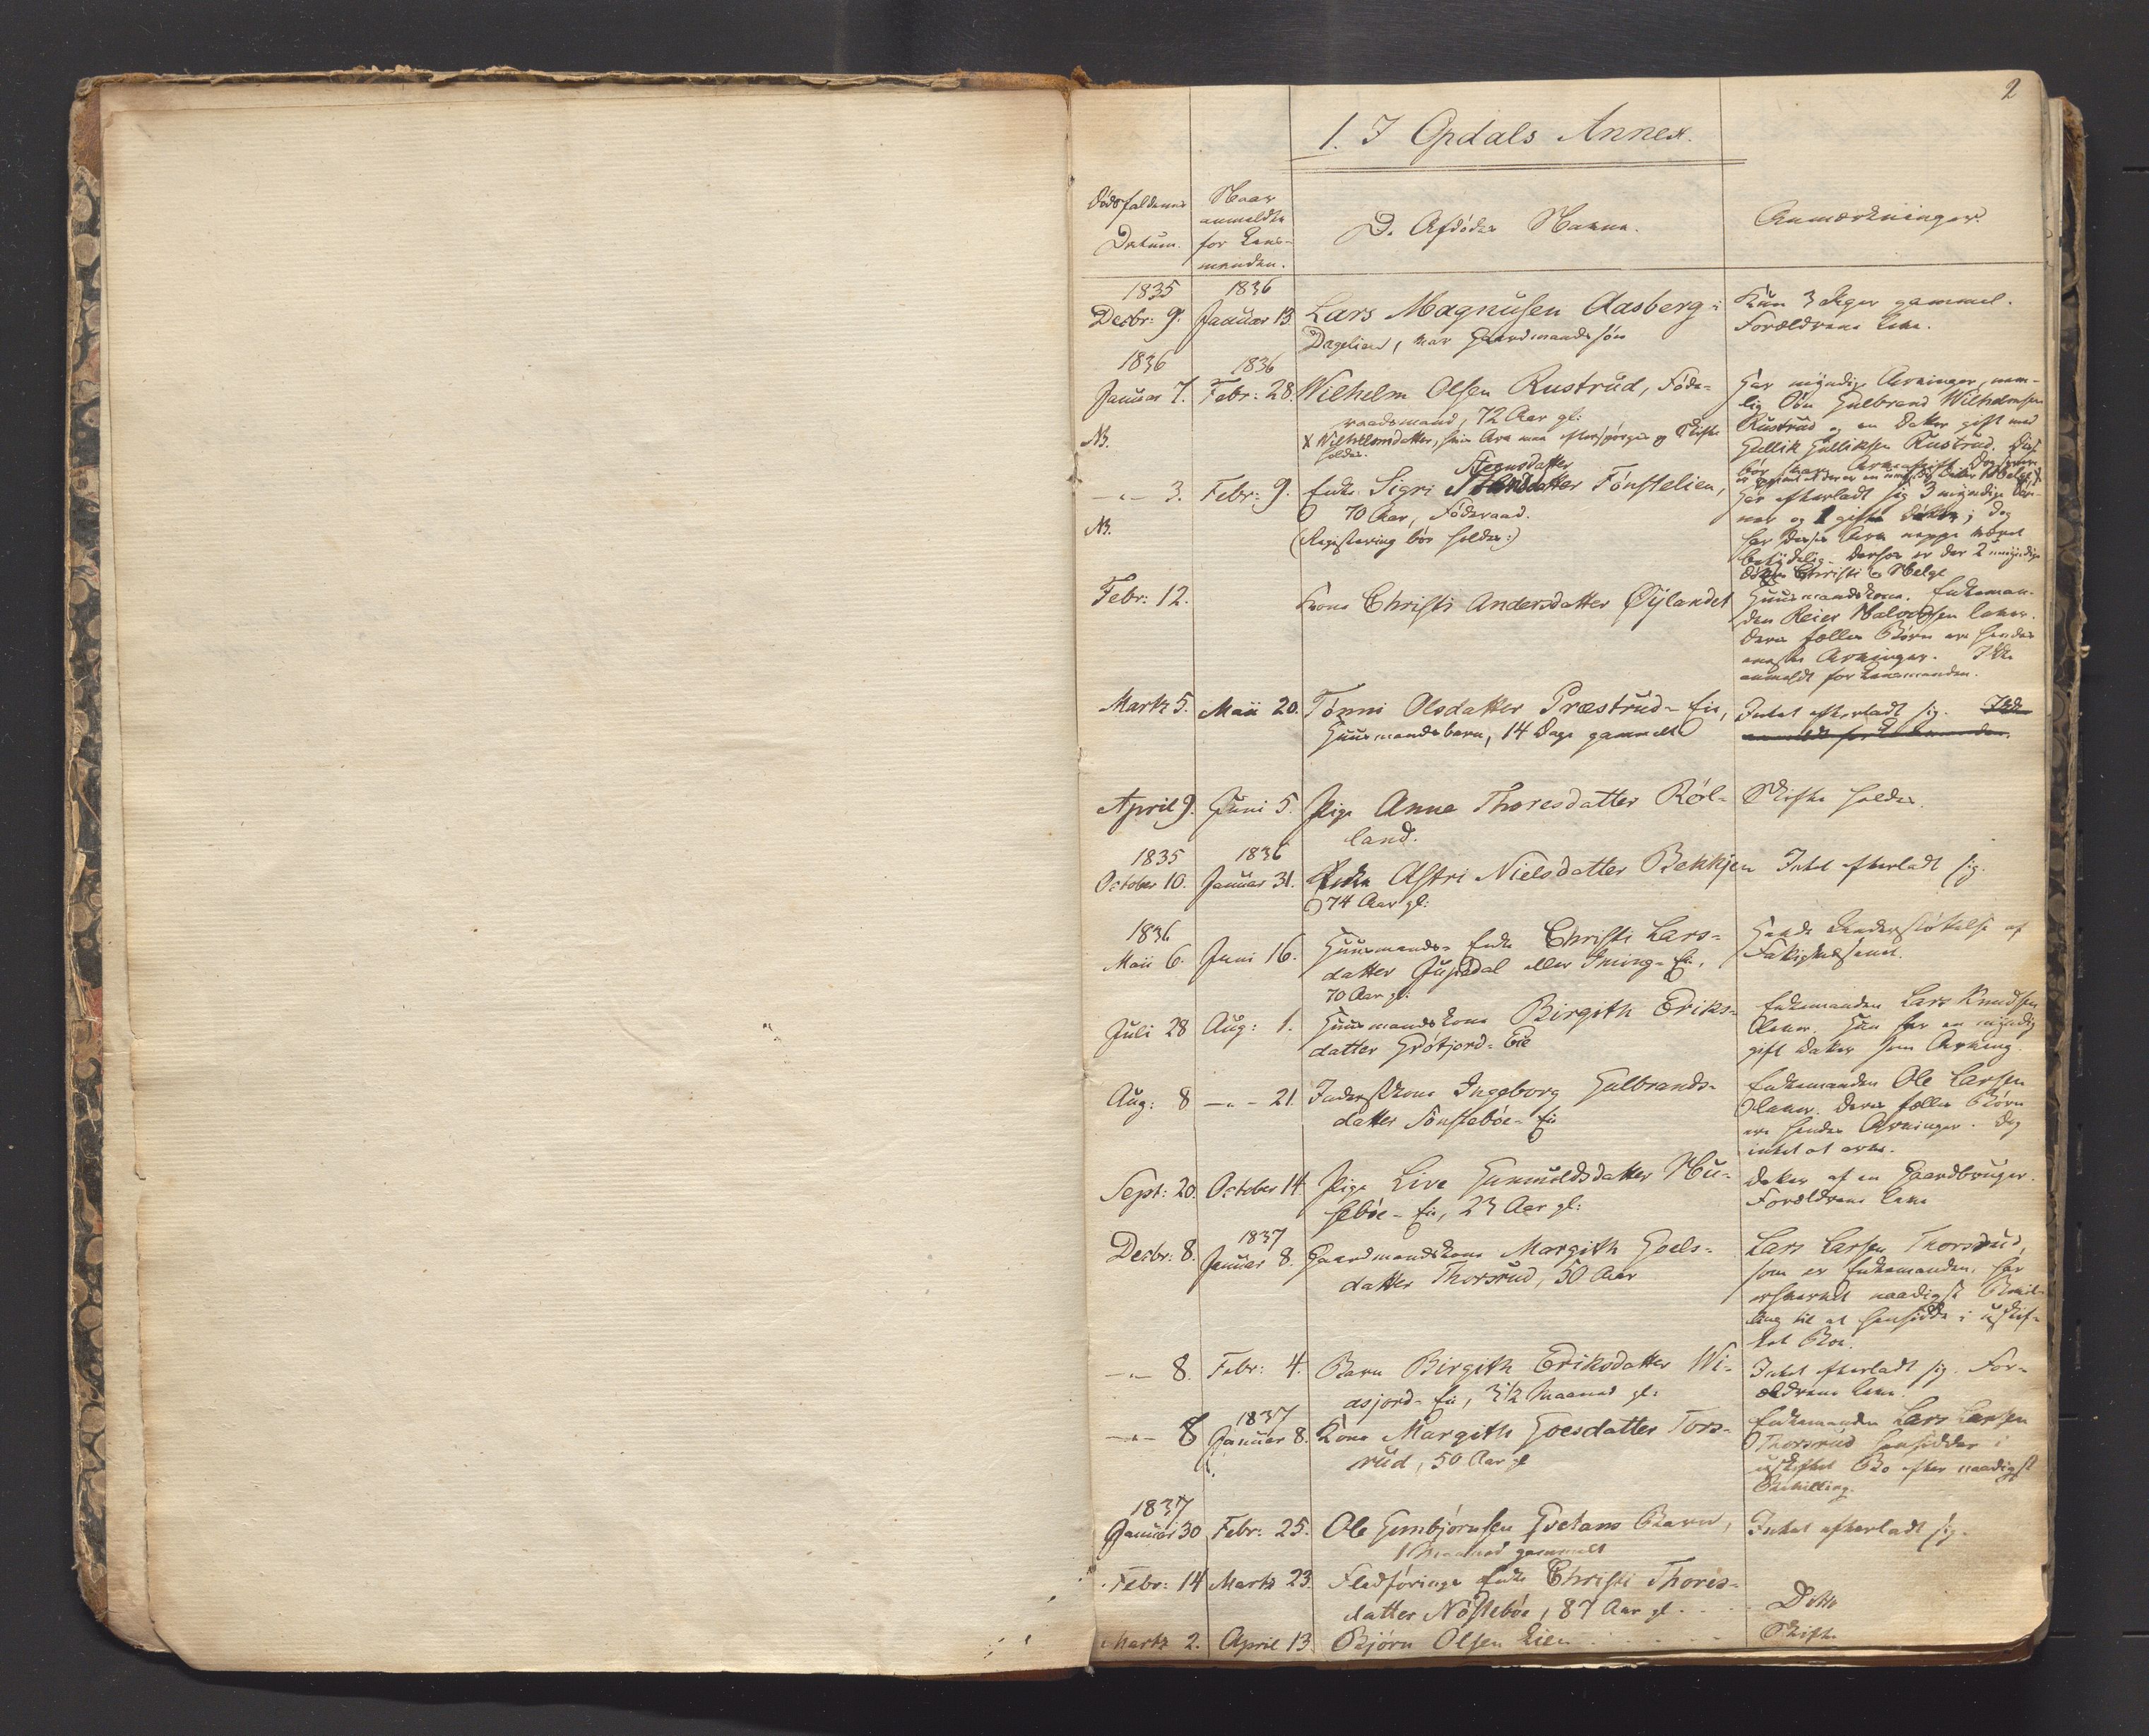 2
1. I Opdals Annex.
Dödsfaldenes
Datum.
Naar
anmeldte
for Lens-
manden.
D. Afdödes Navne.
Anmærkninger.
1835
Decbr: 9.
1836
Januar 13
Lars Magnusen Aasberg i
Dagalien, var Gaardmandssön
Kun 3 Uger gammel.
Forældrene leve.
1836
Januar 7.
1836
Febr: 28.
Wilhelm Olsen Rustrud, Föde-
raadsmand, 72 Aar gl:
NB.
X Wilhelmsdatter, hvis Arv maa efterspörges og Skifte
holdes.
Har myndige Arvinger, nem-
lig Sön Gulbrand Wilhelmsen
Rustrud og en Datter gift med
Gullik Gulliksen Rustrud.
-"- 3.
Febr: 9.
Steensdatter
Enke Sigri Fönstelien,
70 Aar, Föderaad.
NB.
(Registering bör holdes:)
Har efterladt sig 3 myndige Sön-
ner og 1 gift Datter; dog
har deres Arv neppe været
betydelig. Desfor er der 2 umyndige
Döttre Christi & Helge
Febr: 12.
Kone Christi Andersdatter Öylandet
Huusmandskone. Enkeman-
den Reier Halvorsen lever.
Deres fælles Börn ere hendes
eneste Arvinger. Ikke
anmeldt for Lensmanden.
Martz 5.
Maii 20.
Tönni Olsdatter Præstrud-Eie,
Huusmandsbarn, 14 Dage gammelt
Intet efterladt sig. Ikke
anmeldt for Lensmanden.
April 9.
Juni 5.
Pige Anne Thoresdatter Röl-
land.
Skifte holdes.
1835
October 10.
1836
Januar 31.
Enke Astri Nielsdatter Bekkjen
74 Aar gl:
Intet efterladt sig.
1836
Maii 6.
Juni 16.
Huusmands-Enke Christi Lars-
datter Jupsdal eller Iming-E.,
70 Aar gl:
Havde Understöttelse af
Fattigvæsenet.
Juli 28
Aug: 1.
Huusmandskone Birgith Eriks-
datter Grötjord-Eie
Enkemanden Lars Knudsen
lever. Hun har en myndig
gift Datter som Arving.
Aug: 8
-"- 21.
Inderstkone Ingeborg Gulbrands-
datter Tönsteböe-Eie
Enkemanden Ole Larsen
lever. Deres fælles Börn
ere hendes Arvinger. Dog
intet at arve.
Sept: 20.
October 14
Pige Live Gunnuldsdatter Hu-
seböe-Eie, 23 Aar gl:
Datter af en Gaardbruger.
Forældrene leve
Decbr: 8.
1837
Januar 8.
Gaardmandskone Margith Goels-
datter Thorsrud, 50 Aar
Lars Larsen Thorsrud,
som er Enkemanden, har
erhvervet naadigst Bevil-
ling til at hensidde i uskif-
tet Boe.
-"- 8.
Febr: 4.
Barn Birgith Eriksdatter Wi-
asjord-Eie, 3 1/2 Maaned gl:
Intet efterladt sig. For-
ældrene leve.
-"- 8
1837
Januar 8.
Kone Margith Goesdatter Tors-
rud, 50 Aar gl
Enkemanden Lars Larsen
Thorsrud hensidder i
uskiftet Bo efter naadigst
Bevilling.
1837
Januar 30
Febr: 25.
Ole Gunbjörnsen Gvetans Barn,
1 Maaned gammelt
Intet efterladt sig.
Febr: 14
Martz 23.
Fladföringe Enke Christi Thores-
datter Nösteböe, 87 Aar gl. . . .
Ditto
Martz 2.
April 13
Björn Olsen Lien . . . . .
Skifte